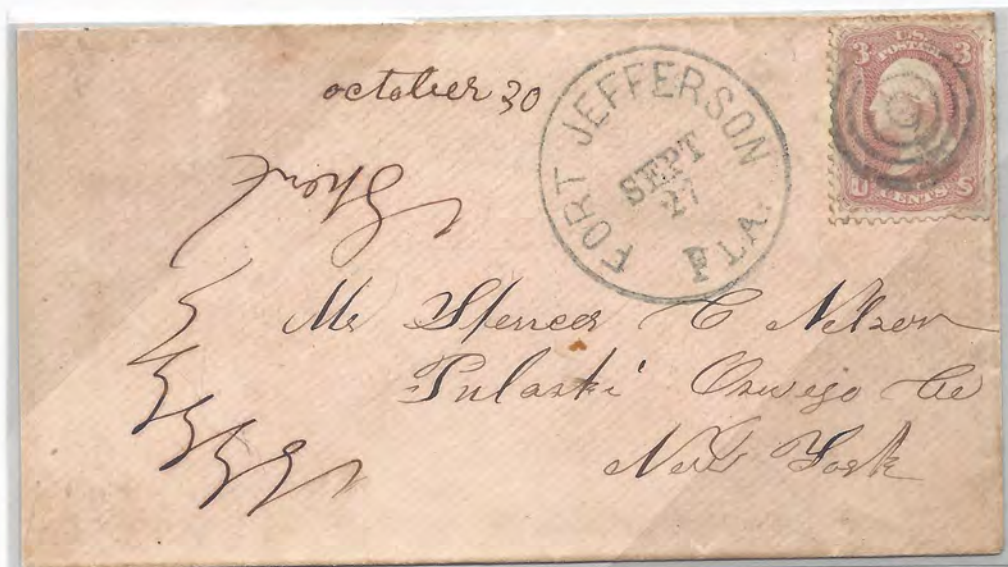 october 30
FORT JEFFERSON
SEPT
27
FLA.
3 U.S. 3
POSTAGE
U CENTS S
Mr Spencer C Nelson
Pulaski Oswego Co
New York